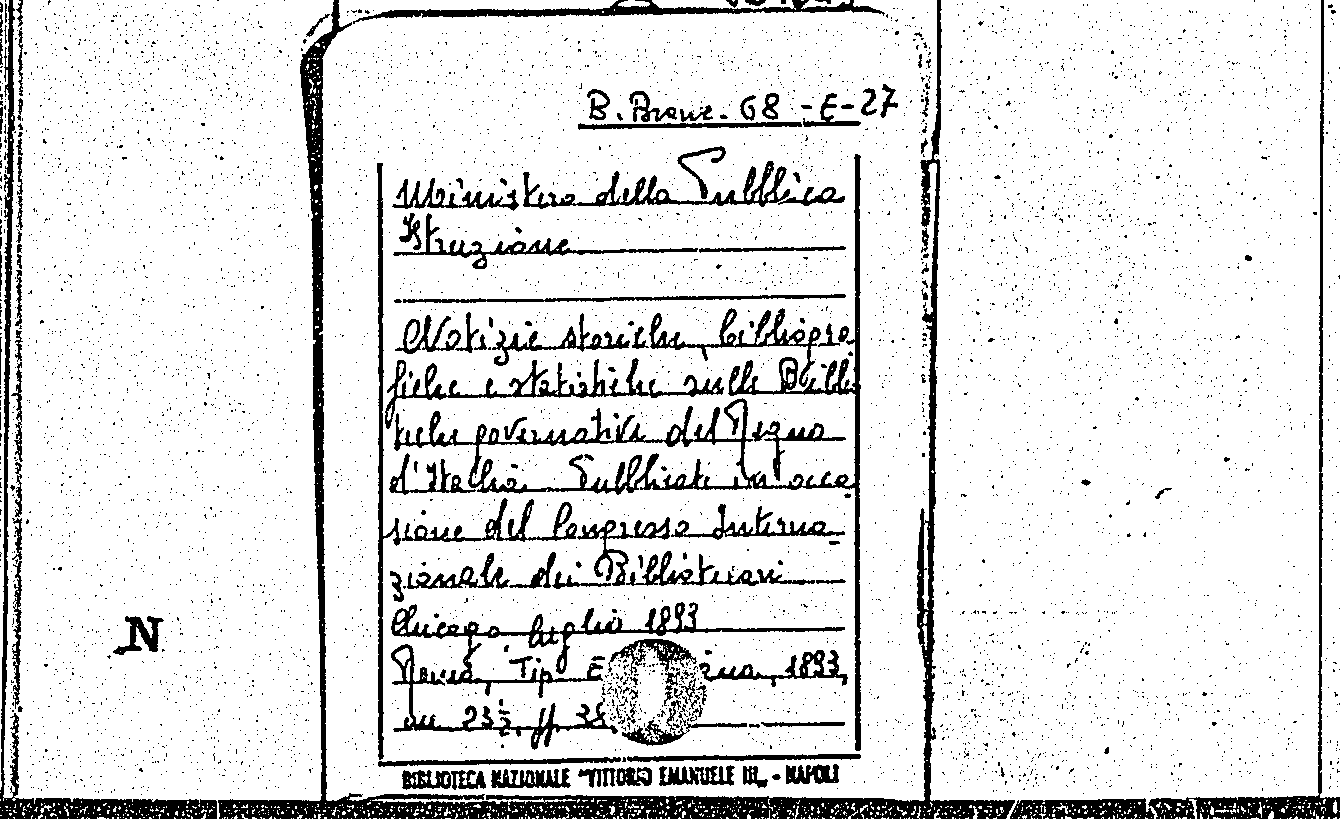 B. Branc. 68-E-27
Ministero della Pubblica
Istruzione
Notizie storiche, bibliogra
fiche e statistiche sulle Biblio
teche governative del Regno
d'Italia. Pubblicate in occa
sione del Congresso Interna-
zionale dei Bibliotecari
Chicago luglio 1893
Roma, Tip 1893,
N
BIBLIOTECA NAZIONALE "VITTORIO EMANUELE III" - NAPOLI